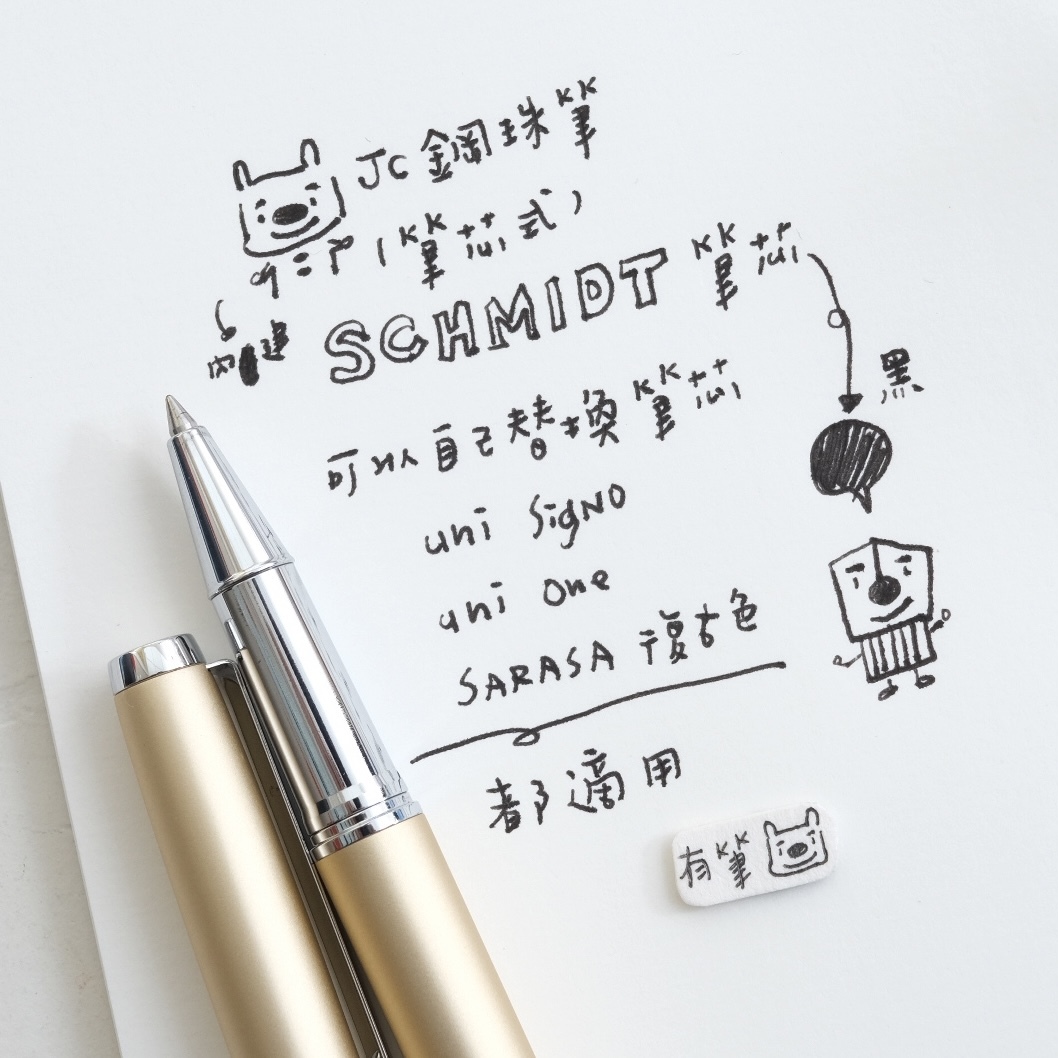 JC 鋼珠筆
(筆芯式)
內建
SCHMIDT 筆芯
黑
可以自己替換筆芯
uni SigNO
uni one
SARASA 復古色
都適用
有筆